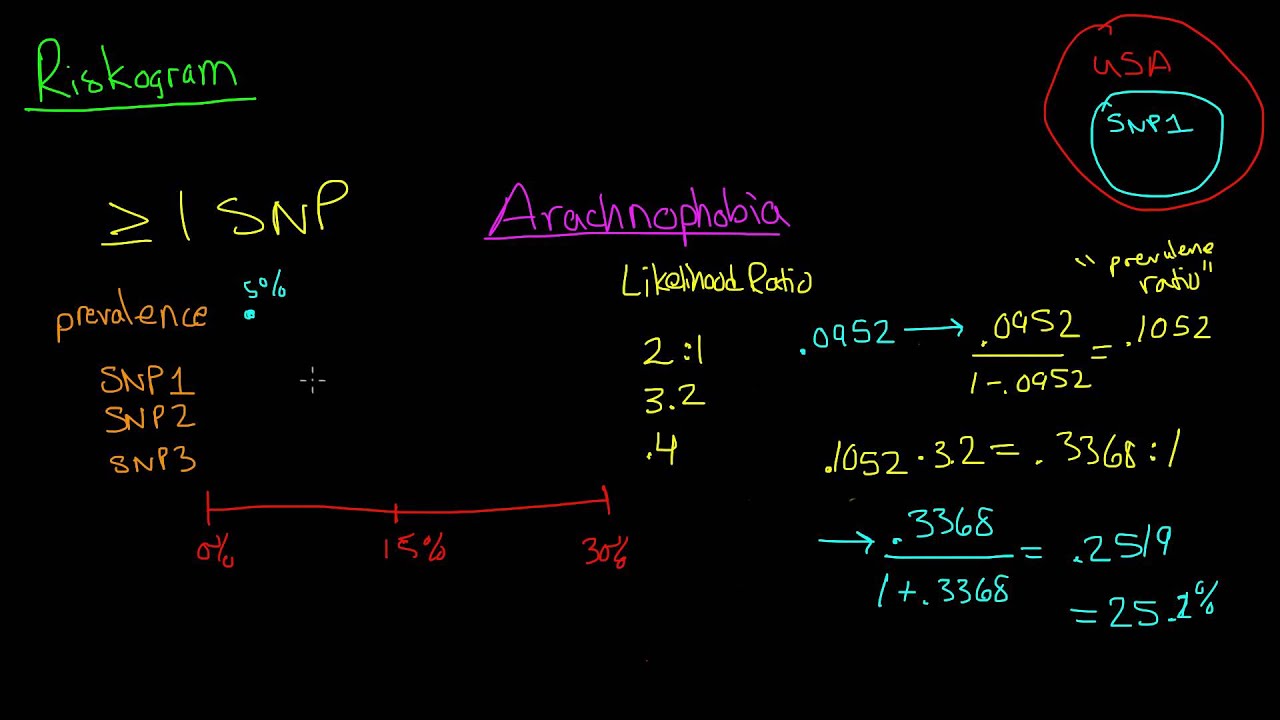 Riskogram
USA
SNP1
≥ 1 SNP
Arachnophobia
prevalence
5%
SNP1
SNP2
SNP3
0%
15%
30%
Likelihood Ratio
2:1
3.2
.4
"prevalene
ratio"
.0952 → .0952 / 1-.0952 = .1052
.1052 · 3.2 = .3368:1
→ .3368 / 1+.3368 = .2519
= 25.2%